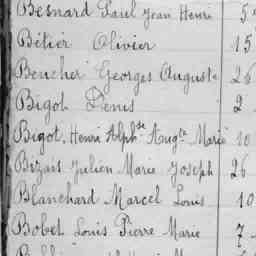 Besnard Paul Jean Henri 5
Bétier Olivier 15
Beucher Georges Auguste 26
Bigot Denis 2
Bigot, Henri Alph.se Aug.te Marie 10
Bizais Julien Marie Joseph 26
Blanchard Marcel Louis 10
Bobet Louis Pierre Marie 7